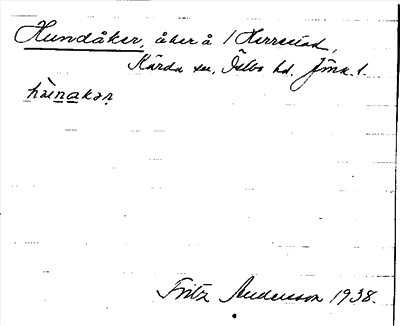 Hundåker, åker å 1 Herrestad,
Kärda sn, Östbo hd. Jönk. l.
hu̇nakər
Fritz Andersson 1938.